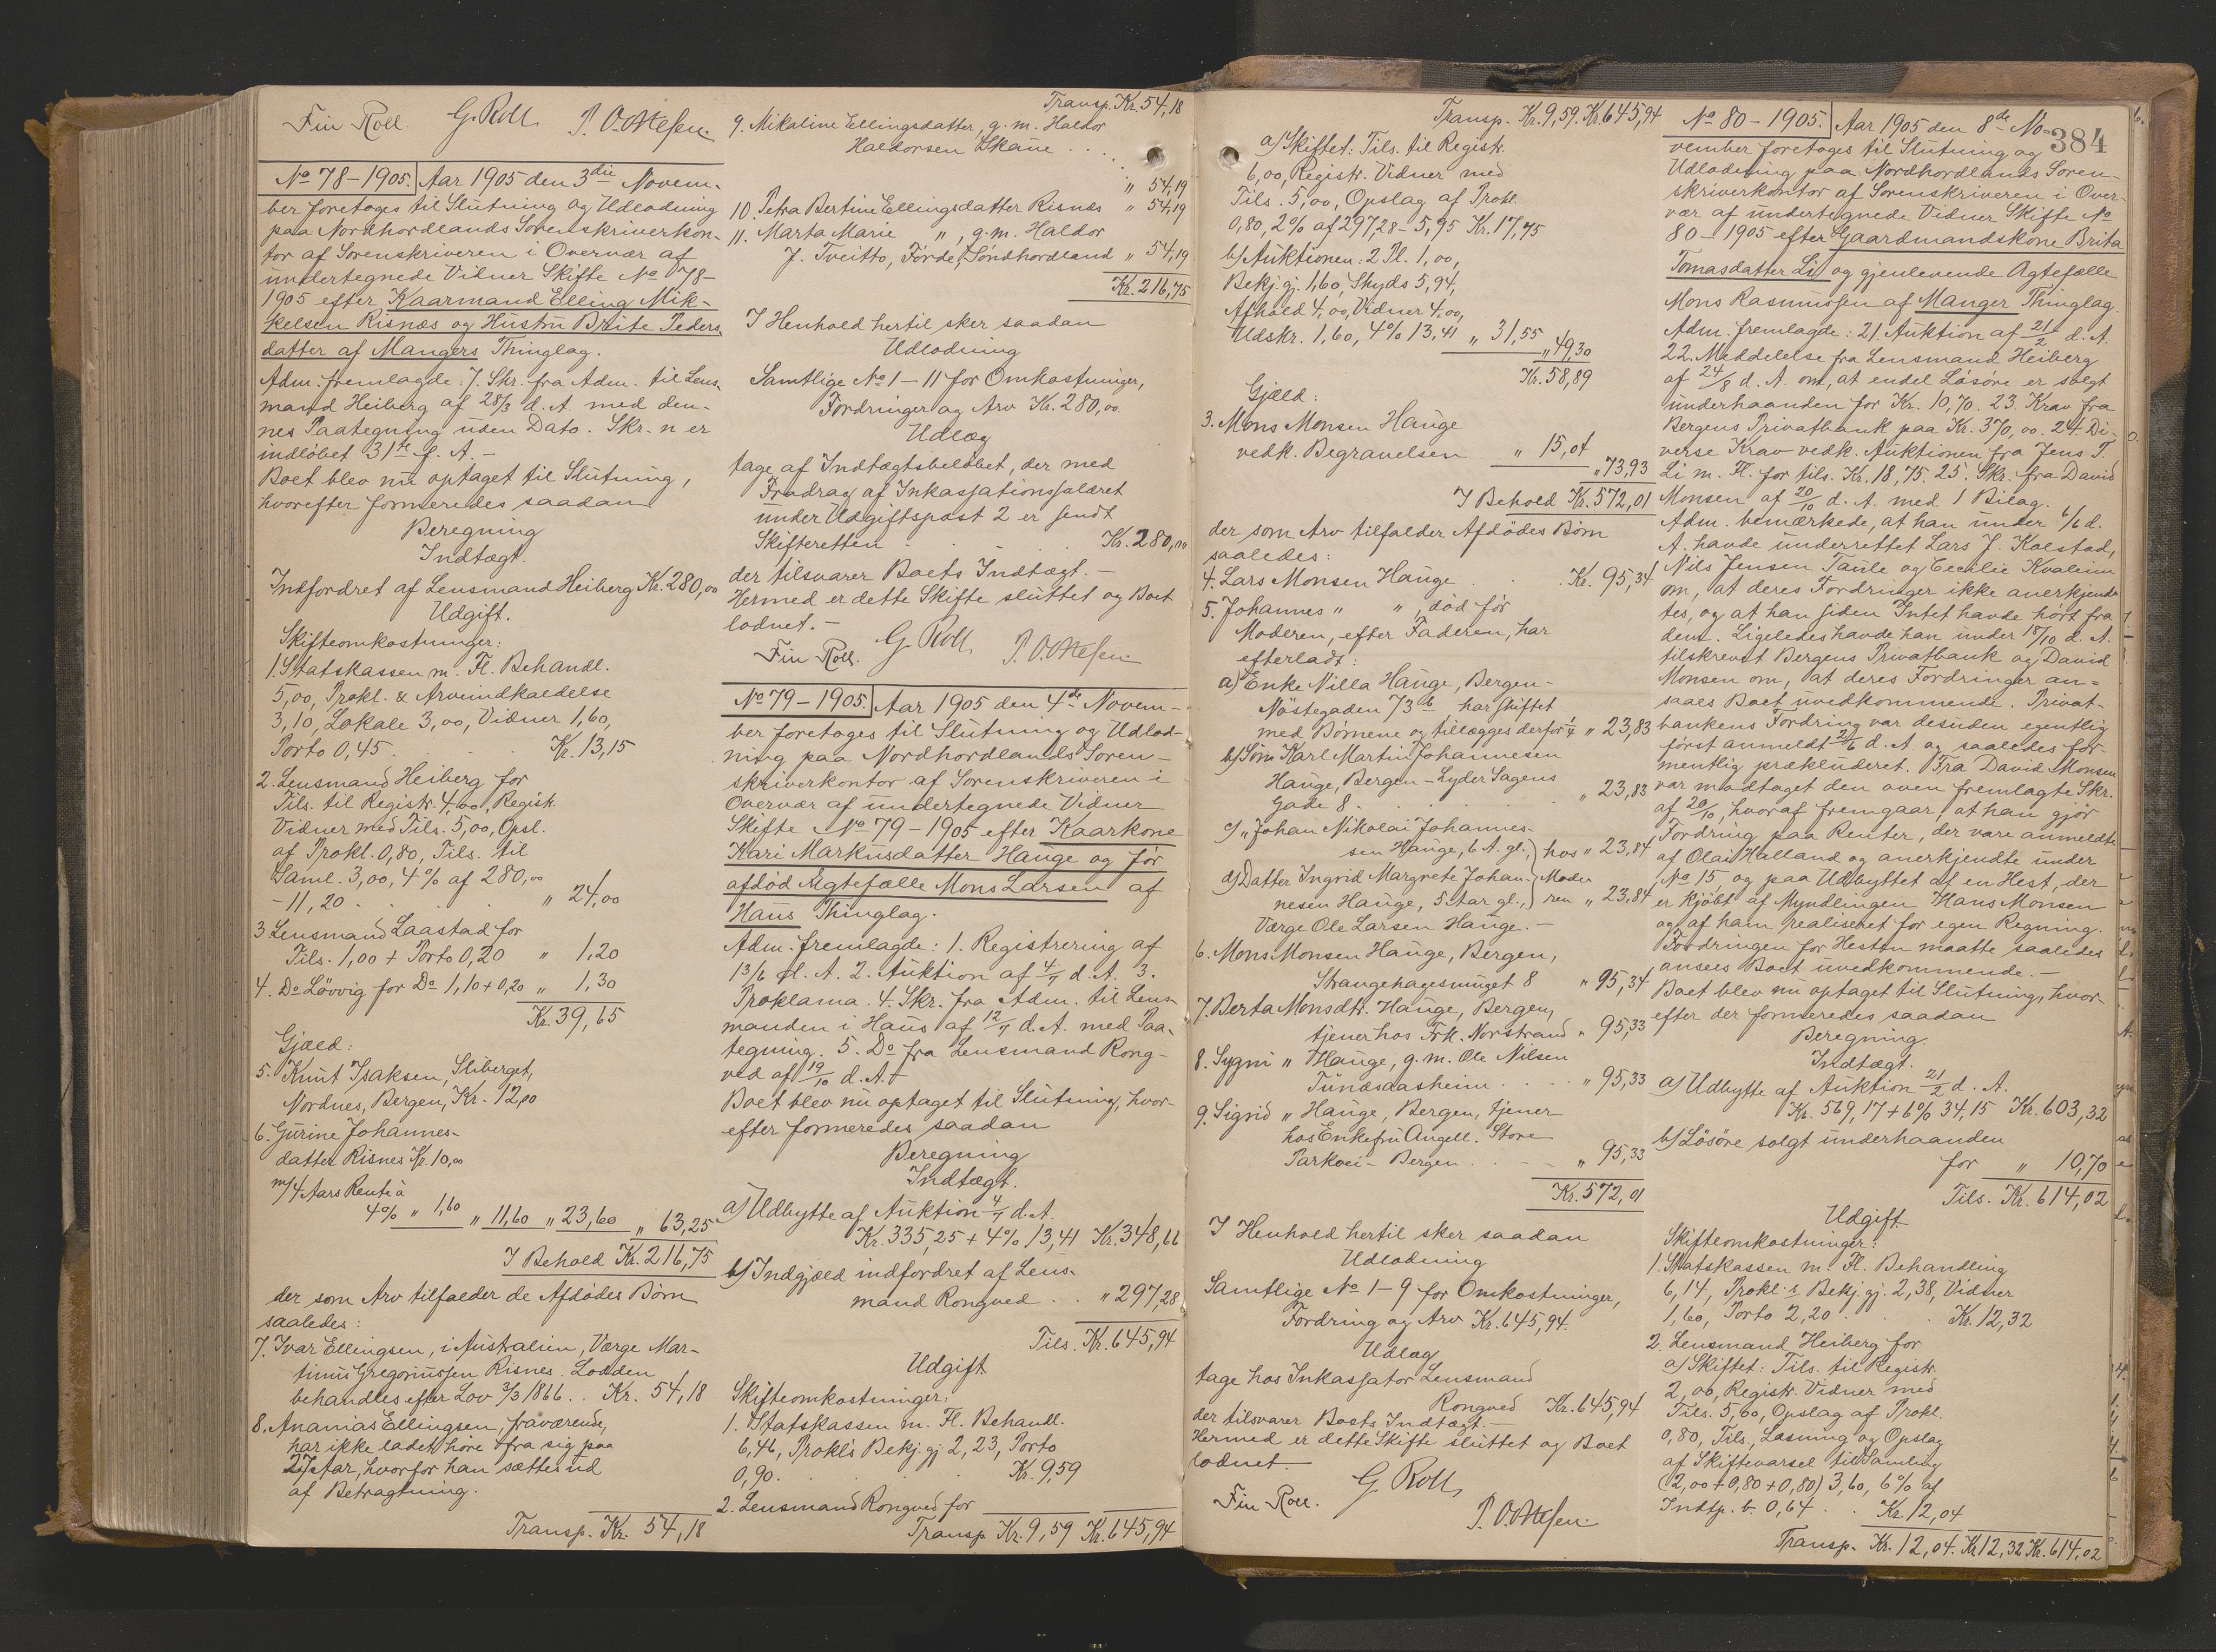 Fin Roll. G. Roll. P. O. Mefsen.
No 78 – 1905. Aar 1905 den 3die Novem-
ber foretoges til Slutning og Udlodning
paa Nordhordlands Sorenskriverkon-
tor af Sorenskriveren i Overvær af
undertegnede Vidner Skifte No 78 –
1905 efter Kaarmand Elling Mik-
kelsen Risnæs og Hustru Brite Peders-
datter af Mangers Thinglag.
Adm. fremlagde: 7. Skr. fra Adm. til Lens-
mand Heiberg af 28/3 d. A. med den-
nes Paategning uden Dato. Skr. n er
indløbet 31te f. A. –
Boet blev nu optaget til Slutning,
hvorefter formeredes saadan
Beregning
Indtægt.
Indfordret af Lensmand Heiberg Kr. 280,00
Udgift.
Skifteomkostninger:
1. Statskassen m. Fl. Behandl.
5,00, Prokl. & Arveindkaldelse
3,10, Lokale 3,00, Vidner 1,60,
Porto 0,45 . . . Kr. 13,15
2. Lensmand Heiberg for
Tils. til Registr. 4,00, Registr.
Vidner med Tils. 5,00, Opsl.
af Prokl. 0,80, Tils. til
Saml. 3,00, 4% af 280,00
– 11,20 . . . " 24,00
3 Lensmand Laastad for
Tils. 1,00 + Porto 0,20 " 1,20
4. Do Løvvig for Do 1,10 + 0,20 " 1,30
Kr. 39,65
Gjæld:
5. Knut Isaksen, Sliberget,
Nordnes, Bergen, Kr. 12,00
6. Gurine Johannes-
datter Risnes Kr. 10,00
m/4 Aars Rente à
4% " 1,60 " 11,60 " 23,60 " 63,25
I Behold Kr. 216,75
der som Arv tilfalder de Afdødes Børn
saaledes:
7. Ivar Ellingsen, i Australien, Værge Mar-
tinus Gregoriussen Risnes. Lodden
behandles efter Lov 3/3 1866 . . Kr. 54,18
8. Ananias Ellingsen, fraværende,
har ikke ladet høre fra sig paa
27 Aar, hvorfor han sættes ud
af Betragtning.
Transp. Kr. 54,18
Transp. Kr. 54,18
9. Mikaline Ellingsdatter, g. m. Haldor
Haldorsen Skane . . .
" 54,19
10. Petra Bertine Ellingsdatter Risnæs " 54,19
11. Marta Marie " , g. m. Haldor
J. Tveitto, Førde, Søndhordland " 54,19
Kr. 216,75
I Henhold hertil sker saadan
Udlodning
Samtlige No 1 – 11 for Omkostninger,
Fordringer og Arv Kr. 280,00.
Udlæg
tage af Indtægtsbeløbet, der med
Fradrag af Inkassationssalæret
under Udgiftspost 2 er sendt
Skifteretten . . . Kr. 280,00
der tilsvarer Boets Indtægt. –
Hermed er dette Skifte sluttet og Boet
lodnet. –
Fin Roll. G. Roll. P. O. Mefsen.
No 79 – 1905. Aar 1905 den 4de Novem-
ber foretoges til Slutning og Udlod-
ning paa Nordhordlands Soren-
skriverkontor af Sorenskriveren i
Overvær af undertegnede Vidner
Skifte No 79 – 1905 efter Kaarkone
Kari Markusdatter Hauge og før
afdød Ægtefælle Mons Larsen af
Haus Thinglag.
Adm. fremlagde: 1. Registrering af
13/6 d. A. 2. Auktion af 4/7 d. A. 3.
Proklama. 4. Skr. fra Adm. til Lens-
manden i Haus af 12/7 d. A. med Paa-
tegning. 5. Do fra Lensmand Rong-
ved af 19/10 d. A. –
Boet blev nu optaget til Slutning, hvor-
efter formeredes saadan
Beregning
Indtægt.
a) Udbytte af Auktion 4/7 d. A.
Kr. 335,25 + 4% 13,41 Kr. 348,66
b) Indgjæld indfordret af Lens-
mand Rongved . . " 297,28
Tils. Kr. 645,94
Udgift
Skifteomkostninger:
1. Statskassen m. Fl. Behandl.
6,46, Prokl's Bekj. gj. 2,23, Porto
0,90 . . . Kr. 9,59
2. Lensmand Rongved for
Transp. Kr. 9,59 Kr. 645,94
Transp. Kr. 9,59. Kr. 645,94
a) Skiftet: Tils. til Registr.
6,00, Registr. Vidner med
Tils. 5,00, Opslag af Prokl.
0,80, 2% af 297,28 – 5,95 Kr. 17,75
b) Auktionen: 2 Pl. 1,00,
Bekj. gj. 1,60, Skyds 5,94,
Afhold 4,00, Vidner 4,00,
Udskr. 1,60, 4% 13,41 " 31,55
" 49,30
Kr. 58,89
Gjæld:
3. Mons Monsen Hauge
vedk. Begravelsen " 15,04
" 73,93
I Behold Kr. 572,01
der som Arv tilfalder Afdødes Børn
saaledes:
4. Lars Monsen Hauge . . Kr. 95,34
5. Johannes " " , død før
Moderen, efter Faderen, har
efterladt:
a) Enke Nilla Hauge, Bergen –
Nøstegaden 73 b har skiftet
med Børnene og tillægges derfor 1/4 " 23,83
b) Søn Karl Martin Johannesen
Hauge, Bergen – Lyder Sagens
Gade 8 . . . " 23,83
c) " Johan Nikolai Johannes-
sen Hauge, 6 A. gl., hos " 23,84
d) Datter Ingrid Margrete Johan- Mode-
nesen Hauge, 5 Aar gl., ren " 23,84
Værge Ole Larsen Hauge. –
6. Mons Monsen Hauge, Bergen,
Strangehagesmuget 8 " 95,34
7. Berta Monsdtr. Hauge, Bergen,
tjener hos Frk. Norstrand " 95,33
8. Sygni " Hauge, g. m. Ole Nilsen
Tunæsaasheim . . . " 95,33
9. Sigrid " Hauge, Bergen, tjener
hos Enkefru Angell. Store
Parkvei – Bergen . . " 95,33
Kr. 572,01
I Henhold hertil sker saadan
Udlodning
Samtlige No 1 – 9 for Omkostninger,
Fordring og Arv Kr. 645,94.
Udlæg
tage hos Inkassator Lensmand
Rongved Kr. 645,94
der tilsvarer Boets Indtægt. –
Hermed er dette Skifte sluttet og Boet
lodnet. –
Fin Roll. G. Roll. P. O. Mefsen.
384
No 80 – 1905. Aar 1905 den 8de No-
vember foretoges til Slutning og
Udlodning paa Nordhordlands Soren-
skriverkontor af Sorenskriveren i Over-
vær af undertegnede Vidner Skifte No
80 – 1905 efter Gaardmandskone Brita
Tomasdatter Li og gjenlevende Ægtefælle
Mons Rasmussen af Manger Thinglag.
Adm. fremlagde: 21. Auktion af 21/2 d. A.
22. Meddelelse fra Lensmand Heiberg
af 24/8 d. A. om, at endel Løsøre er solgt
underhaanden for Kr. 10,70. 23. Krav fra
Bergens Privatbank paa Kr. 370,00. 24. Di-
verse Krav vedk. Auktionen fra Jens T.
Li m. Fl. for tils. Kr. 18,75. 25. Skr. fra David
Monsen af 20/10 d. A. med 1 Bilag.
Adm. bemærkede, at han under 6/6 d.
A. havde underrettet Lars J. Kolstad,
Nils Jensen Taule og Cecilie Kvaleim
om, at deres Fordringer ikke anerkjend-
tes, og at han siden Intet havde hørt fra
dem. Ligeledes havde han under 18/10 d. A.
tilskrevet Bergens Privatbank og David
Monsen om, at deres Fordringer an-
saaes Boet uvedkommende. Privat-
bankens Fordring var desuden egentlig
først anmeldt 21/6 d. A. og saaledes for-
mentlig prækluderet. Fra David Monsen
var modtaget den oven fremlagte Skr.
af 20/10, hvoraf fremgaar, at han gjør
Fordring paa Renter, der vare anmeldte
af Olai Halland og anerkjendte under
No 15, og paa Udbyttet af en Hest, der
er kjøbt af Myndlingen Hans Monsen
og af ham realiseret for egen Regning.
Fordringen for Hesten maatte saaledes
ansees Boet uvedkommende. –
Boet blev nu optaget til Slutning, hvor-
efter der formeredes saadan
Beregning.
Indtægt.
a) Udbytte af Auktion 21/2 d. A.
Kr. 569,17 + 6% 34,15 Kr. 603,32
b) Løsøre solgt underhaanden
for " 10,70
Tils. Kr. 614,02
Udgift
Skifteomkostninger:
1. Statskassen m. Fl. Behandling
6,14, Prokl.s Bekj. gj. 2,38, Vidner
1,60, Porto 2,20 . . Kr. 12,32
2. Lensmand Heiberg for
a) Skiftet: Tils. til Registr.
2,00, Registr. Vidner med
Tils. 5,00, Opslag af Prokl.
0,80, Tils., Læsning og Opslag
af Skiftevarsel til Samling
(2,00 + 0,80 + 0,80) 3,60, 6% af
Indtp. b. 0,64 . . Kr. 12,04
Transp. Kr. 12,04. Kr. 12,32 Kr. 614,02